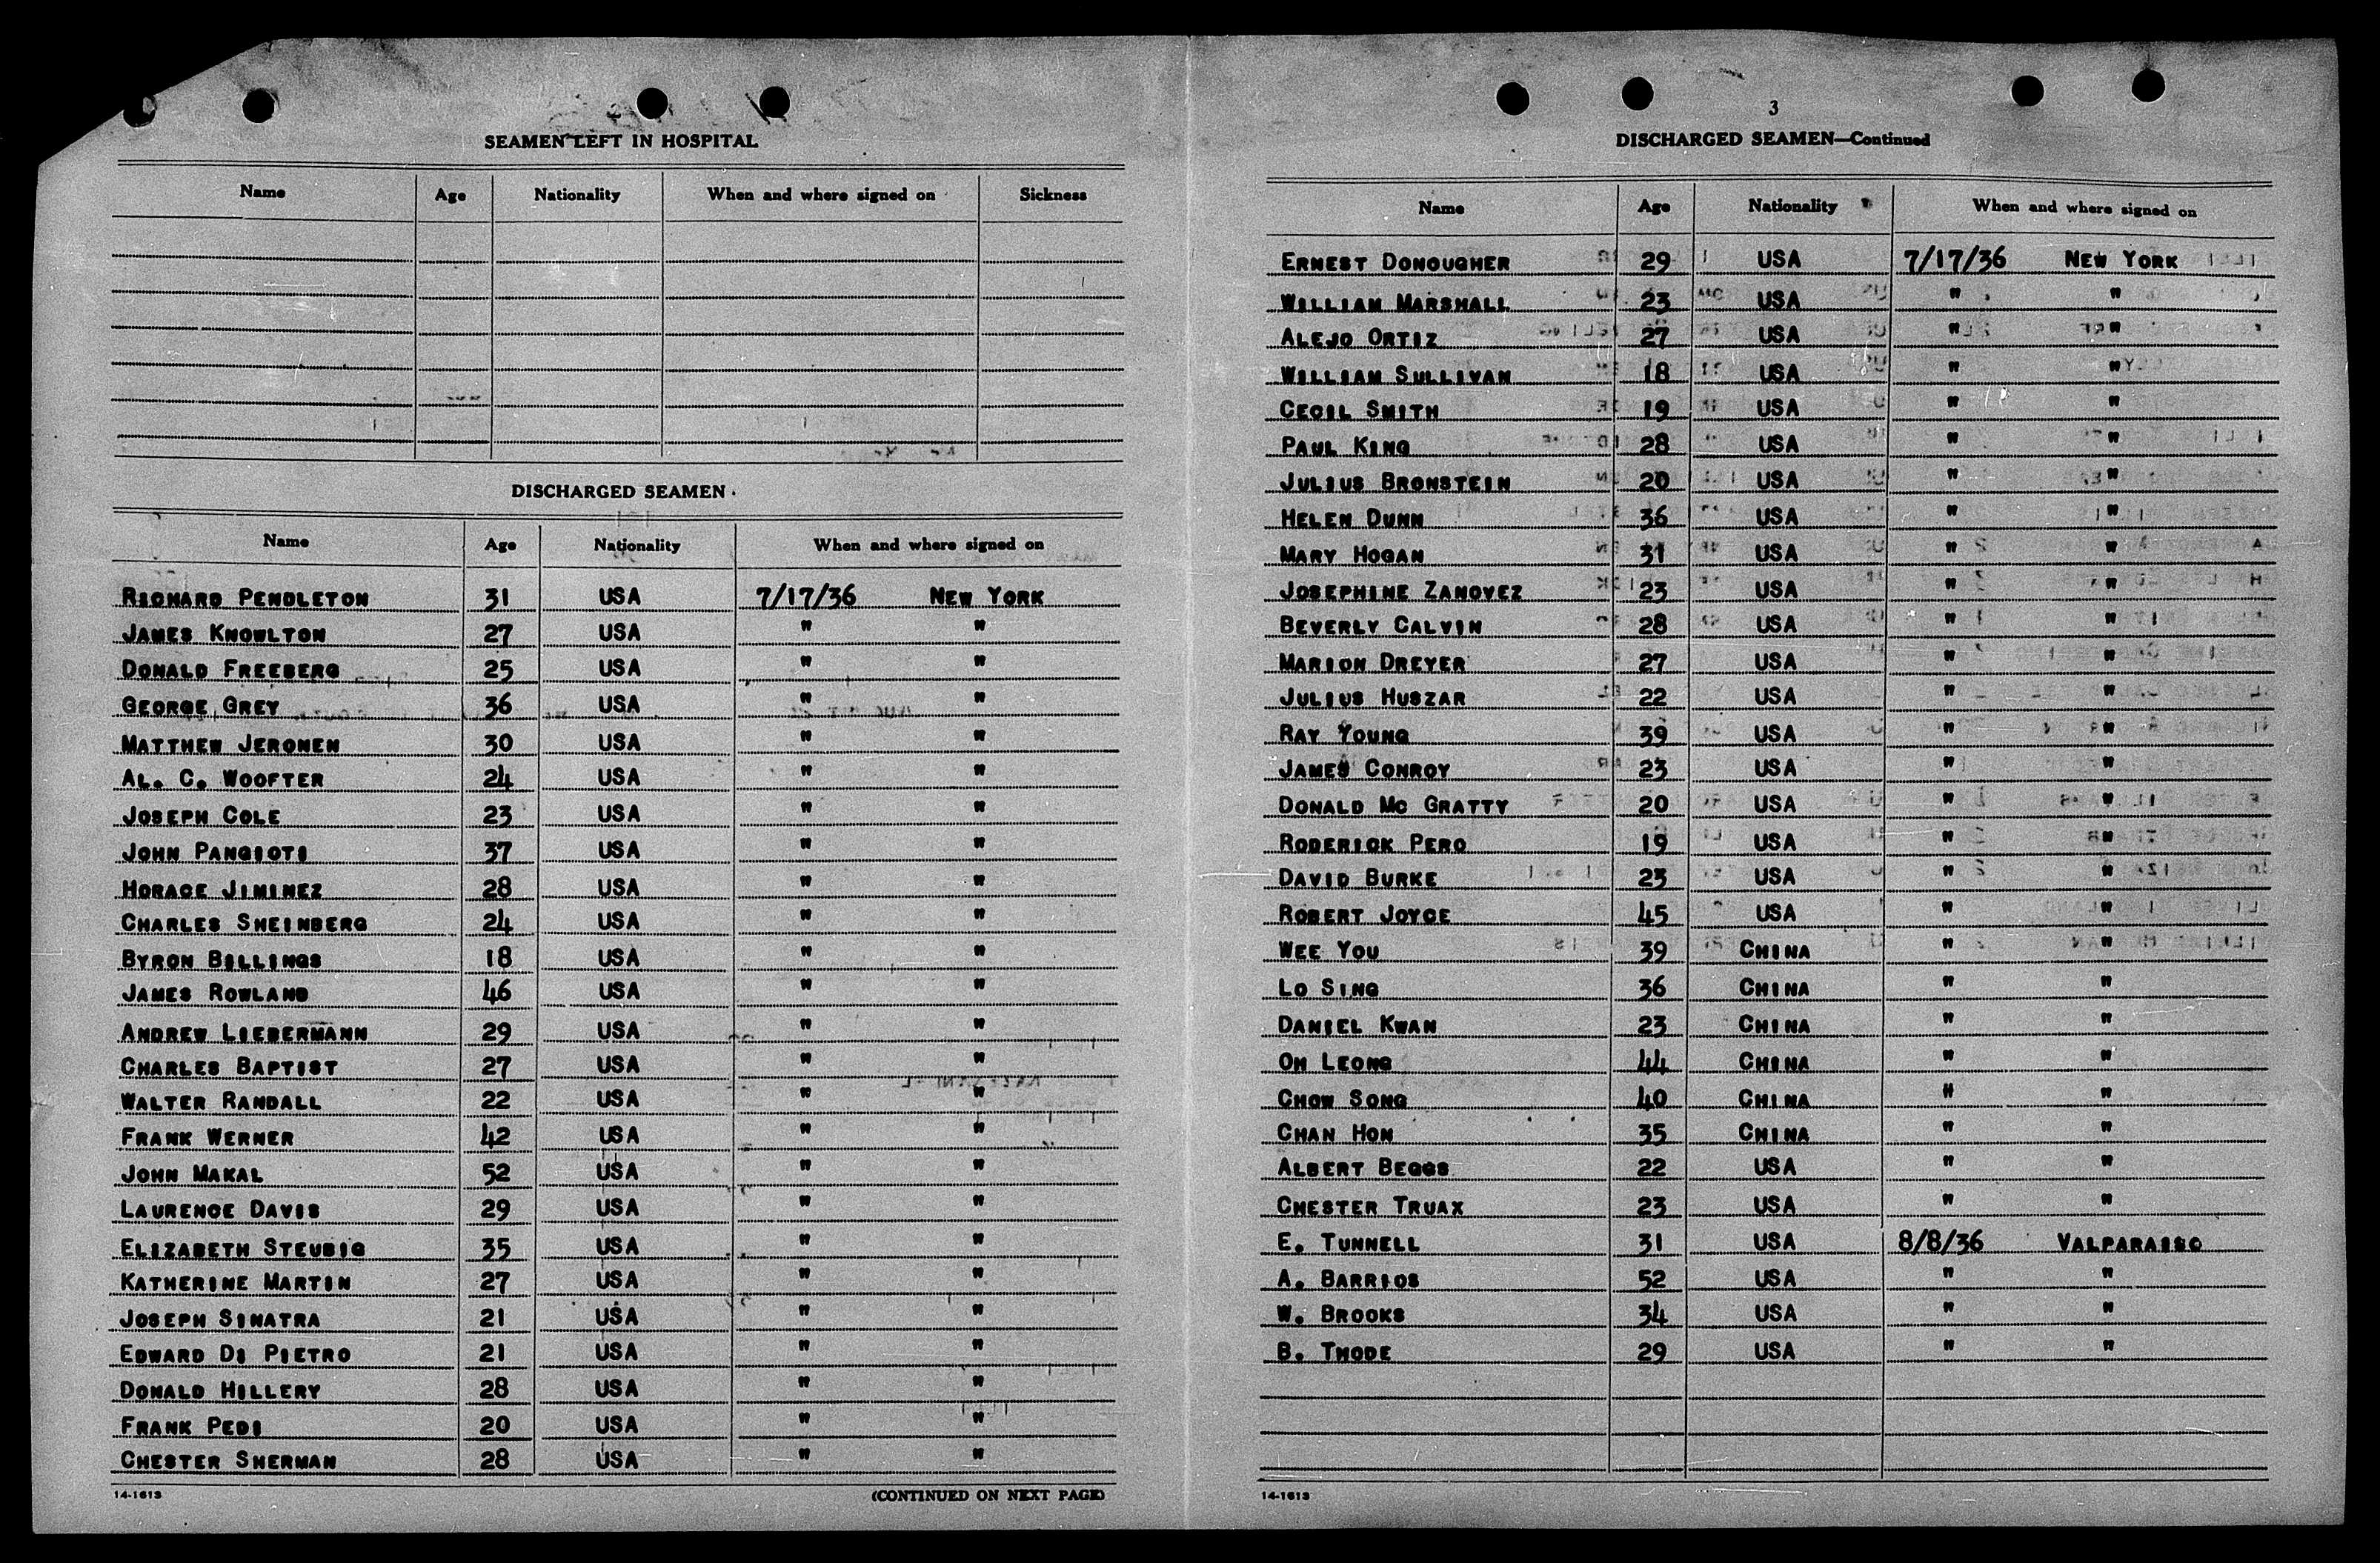 SEAMEN LEFT IN HOSPITAL
Name Age Nationality When and where signed on Sickness
DISCHARGED SEAMEN
Name Age Nationality When and where signed on
RICHARD PENDLETON 31 USA 7/17/36 NEW YORK
JAMES KNOWLTON 27 USA " "
DONALD FREEBERG 25 USA " "
GEORGE GREY 36 USA " "
MATTHEW JEROMEN 30 USA " "
AL. C. WOOFTER 24 USA " "
JOSEPH COLE 23 USA " "
JOHN PANGIOTI 37 USA " "
HORACE JIMINEZ 28 USA " "
CHARLES SHEINBERG 24 USA " "
BYRON BILLINGS 18 USA " "
JAMES ROWLAND 46 USA " "
ANDREW LIEBERMANN 29 USA " "
CHARLES BAPTIST 27 USA " "
WALTER RANDALL 22 USA " "
FRANK WERNER 42 USA " "
JOHN MAKAL 52 USA " "
LAURENCE DAVIS 29 USA " "
ELIZABETH STEUBIG 35 USA " "
KATHERINE MARTIN 27 USA " "
JOSEPH SINATRA 21 USA " "
EDWARD DI PIETRO 21 USA " "
DONALD HILLERY 28 USA " "
FRANK PEDI 20 USA " "
CHESTER SHERMAN 28 USA " "
14-1613 (CONTINUED ON NEXT PAGE)
3
DISCHARGED SEAMEN—Continued
Name Age Nationality When and where signed on
ERNEST DONOUGHER 29 USA 7/17/36 NEW YORK
WILLIAM MARSHALL 23 USA " "
ALEJO ORTIZ 27 USA " "
WILLIAM SULLIVAN 18 USA " "
CECIL SMITH 19 USA " "
PAUL KING 28 USA " "
JULIUS BRONSTEIN 20 USA " "
HELEN DUNN 36 USA " "
MARY HOGAN 31 USA " "
JOSEPHINE ZANOVEZ 23 USA " "
BEVERLY CALVIN 28 USA " "
MARION DREYER 27 USA " "
JULIUS HUSZAR 22 USA " "
RAY YOUNG 39 USA " "
JAMES CONROY 23 USA " "
DONALD MC GRATTY 20 USA " "
RODERICK PERO 19 USA " "
DAVID BURKE 23 USA " "
ROBERT JOYCE 45 USA " "
WEE YOU 39 CHINA " "
LO SING 36 CHINA " "
DANIEL KWAN 23 CHINA " "
OH LEONG 44 CHINA " "
CHOW SONG 40 CHINA " "
CHAN HON 35 CHINA " "
ALBERT BEGGS 22 USA " "
CHESTER TRUAX 23 USA " "
E. TUNNELL 31 USA 8/8/36 VALPARAISO
A. BARRIOS 52 USA " "
W. BROOKS 34 USA " "
B. THODE 29 USA " "
14-1613